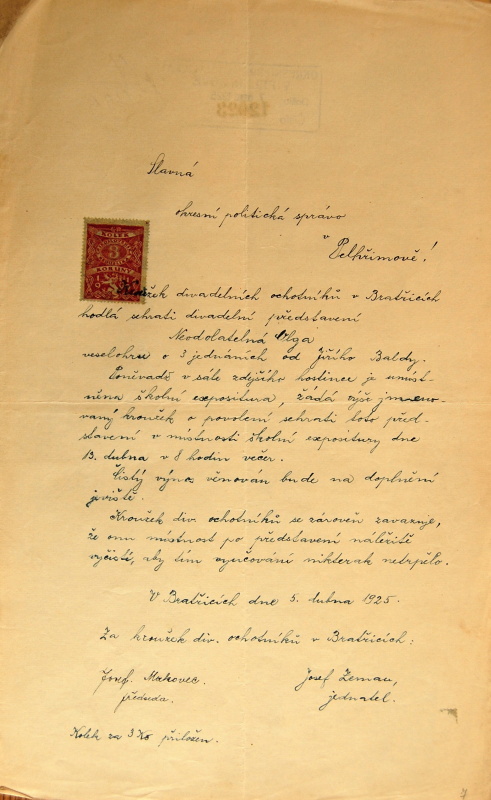 Slavná
okresní politická správo
v
Pelhřimově!
KOLEK
3
KORUNY
Kroužek divadelních ochotníků v Bratřicích
hodlá sehrati divadelní představení
Neodolatelná Olga
veselohru o 3 jednáních od Jiřího Baldy.
Poněvadž v sále zdejšího hostince je umíst-
něna školní expositura, žádá výše jmeno-
vaný kroužek o povolení sehrati toto před-
stavení v místnosti školní expositury dne
13. dubna v 8 hodin večer.
Čistý výnos věnován bude na doplnění
jeviště.
Kroužek div. ochotníků se zároveň zavazuje,
že onu místnost po představení náležitě
vyčistí, aby tím vyučování nikterak netrpělo.
V Bratřicích dne 5. dubna 1925.
Za kroužek div. ochotníků v Bratřicích:
Josef Makovec.
předseda.
Josef Zeman,
jednatel.
Kolek za 3 Kč přiložen.
7